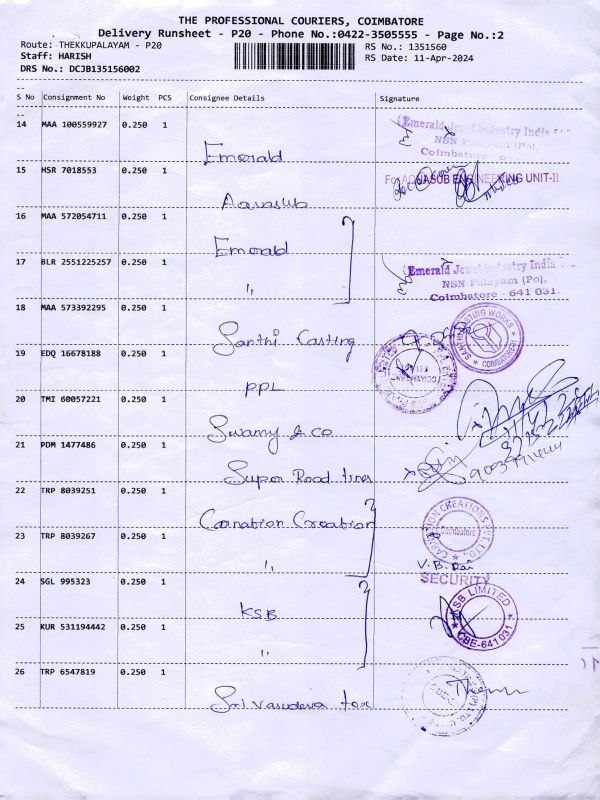 THE PROFESSIONAL COURIERS, COIMBATORE
Delivery Runsheet - P20 - Phone No.:0422-3505555 - Page No.:2
Route: THEKKUPALAYAM - P20
RS No.: 1351560
Staff: HARISH
RS Date: 11-Apr-2024
DRS No.: DCJB135156002
S No Consignment No Weight PCS Consignee Details Signature
14 MAA 100559927 0.250 1
Emerald
Emerald Jewel Industry India
NSN Palayam (Po),
Coimbatore
15 HSR 7018553 0.250 1
Aquasub
For AQUASUB ENGINEERING UNIT-II
16 MAA 572054711 0.250 1
Emerald
17 BLR 2551225257 0.250 1
"
Emerald Jewel Industry India
NSN Palayam (Po),
Coimbatore - 641 031.
18 MAA 573392295 0.250 1
Santhi Casting
SANTHI CASTING WORKS
COIMBATORE
19 EDQ 16678188 0.250 1
PPL
20 TMI 60057221 0.250 1
Swamy & co
21 PDM 1477486 0.250 1
Super Road lines
22 TRP 8039251 0.250 1
Carnation Creation
CARNATION CREATIONS PVT.LTD.,
Coimbatore
23 TRP 8039267 0.250 1
"
SECURITY
24 SGL 995323 0.250 1
KSB
KSB LIMITED
CBE-641 031
25 KUR 531194442 0.250 1
"
26 TRP 6547819 0.250 1
Sri Vasudeva tex